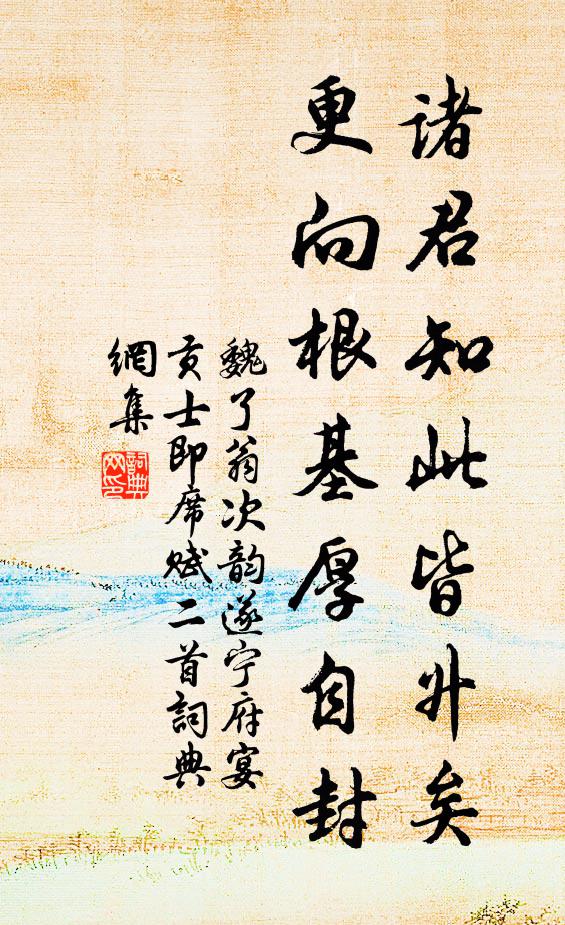 诸君知此皆外矣
更向根基厚自封
魏了翁次韵遂宁府宴
贡士即席赋二首詞典
網集
詞典
网印